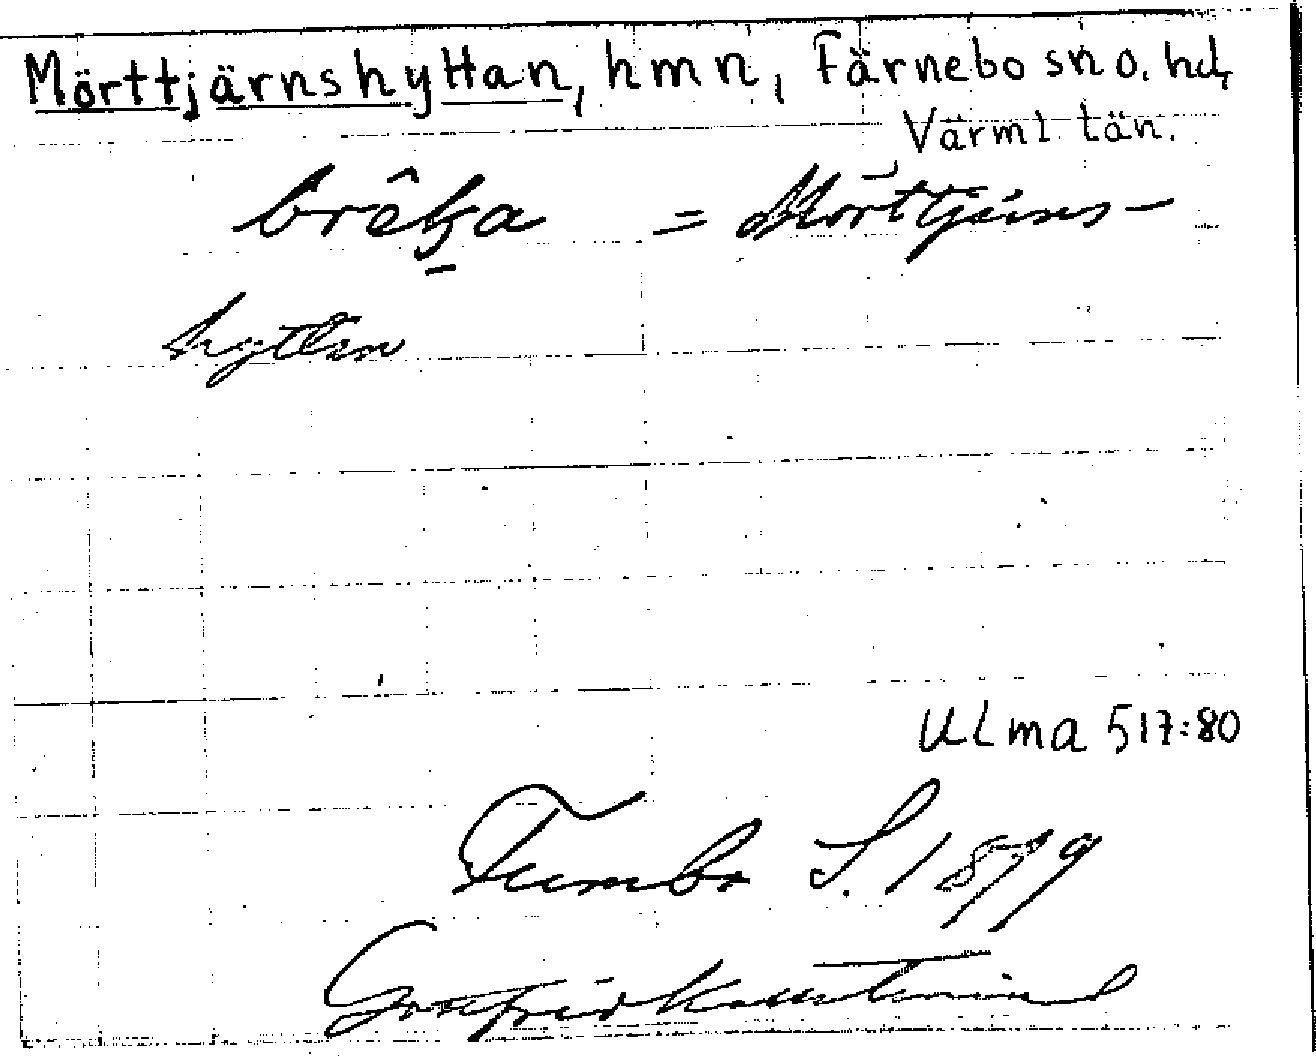 Mörttjärnshyttan, hmn, Färnebo sn o. hd,
Värml. län.
brêka = Mörttjärns-
hyttan
ULMA 517:80
Tumbo S. 1879
Gottfrid Kallstenius